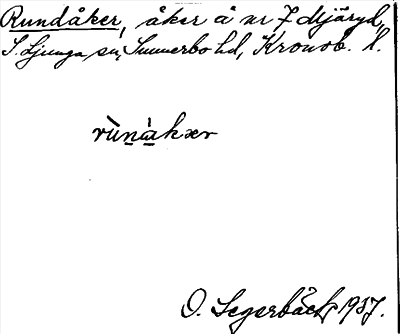 Rundåker, åker å nr 7 Mjäryd,
S. Ljunga sn, Sunnerbo hd, Kronob. l.
rùnákær
O. Segerbäck 1937.